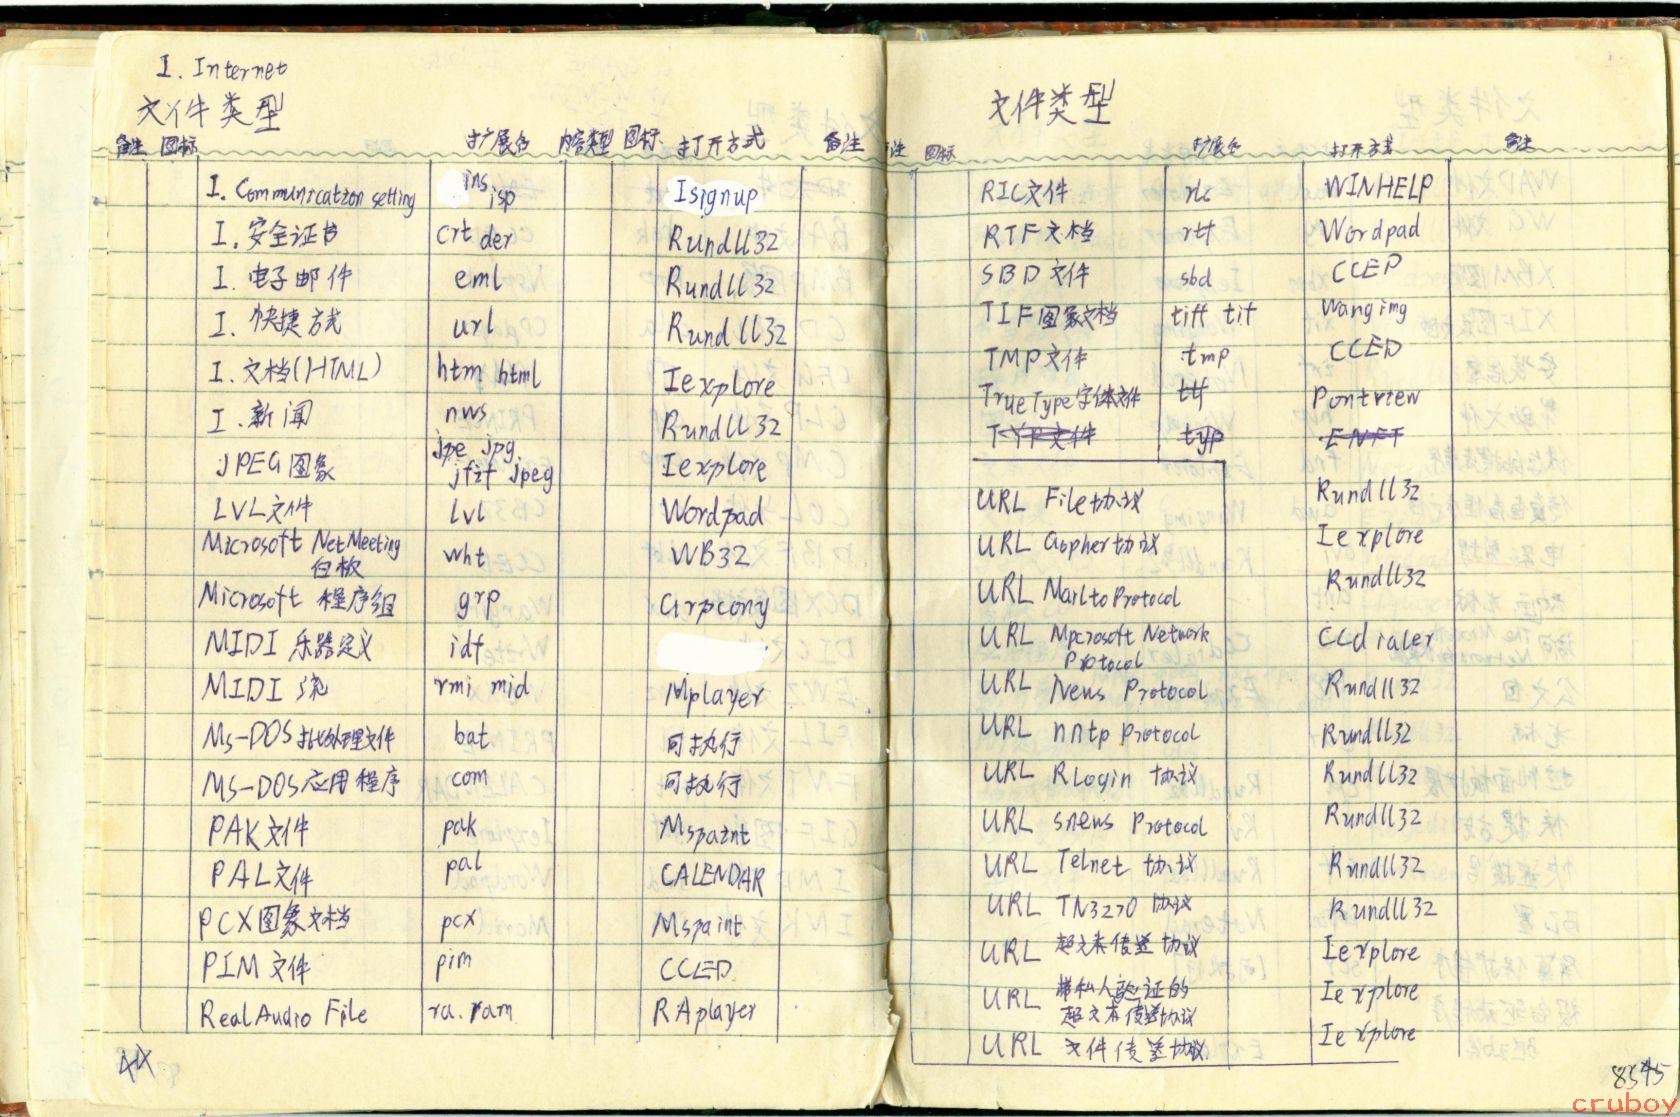 I. Internet
文件类型
备注 图标 扩展名 内容类型 图标 打开方式 备注
I. Communication setting ins isp Isignup
I. 安全证书 crt der Rundll32
I. 电子邮件 eml Rundll32
I. 快捷方式 url Rundll32
I. 文档(HTML) htm html Iexplore
I. 新闻 nws Rundll32
JPEG图象 jpe jpg. jfif jpeg Iexplore
LVL文件 lvl Wordpad
Microsoft NetMeeting 白板 wht WB32
Microsoft 程序组 grp Grpconv
MIDI 乐器定义 idf
MIDI rmi mid Mplayer
Ms-DOS批处理文件 bat 可执行
Ms-DOS应用程序 com 可执行
PAK文件 pak Mspaint
PAL文件 pal CALENDAR
PCX图象文档 pcx Mspaint
PIM文件 pim CCED
RealAudio File ra.ram RAplayer
44
文件类型
注 图标 扩展名 打开方式 备注
RIC文件 ric WINHELP
RTF文档 rtf Wordpad
SBD文件 sbd CCED
TIF图象文档 tiff tif Wangimg
TMP文件 tmp CCED
TrueType字体文件 ttf Fontview
TYP文件 typ
URL File协议 Rundll32
URL Gopher协议 Iexplore
URL MailtoProtocol Rundll32
URL Microsoft Network Protocol CCdialer
URL News Protocol Rundll32
URL nntp Protocol Rundll32
URL RLogin 协议 Rundll32
URL snews Protocol Rundll32
URL Telnet 协议 Rundll32
URL TN3270 协议 Rundll32
URL 超文本传送协议 Iexplore
URL 带私人验证的超文本传送协议 Iexplore
URL 文件传送协议 Iexplore
cruboy